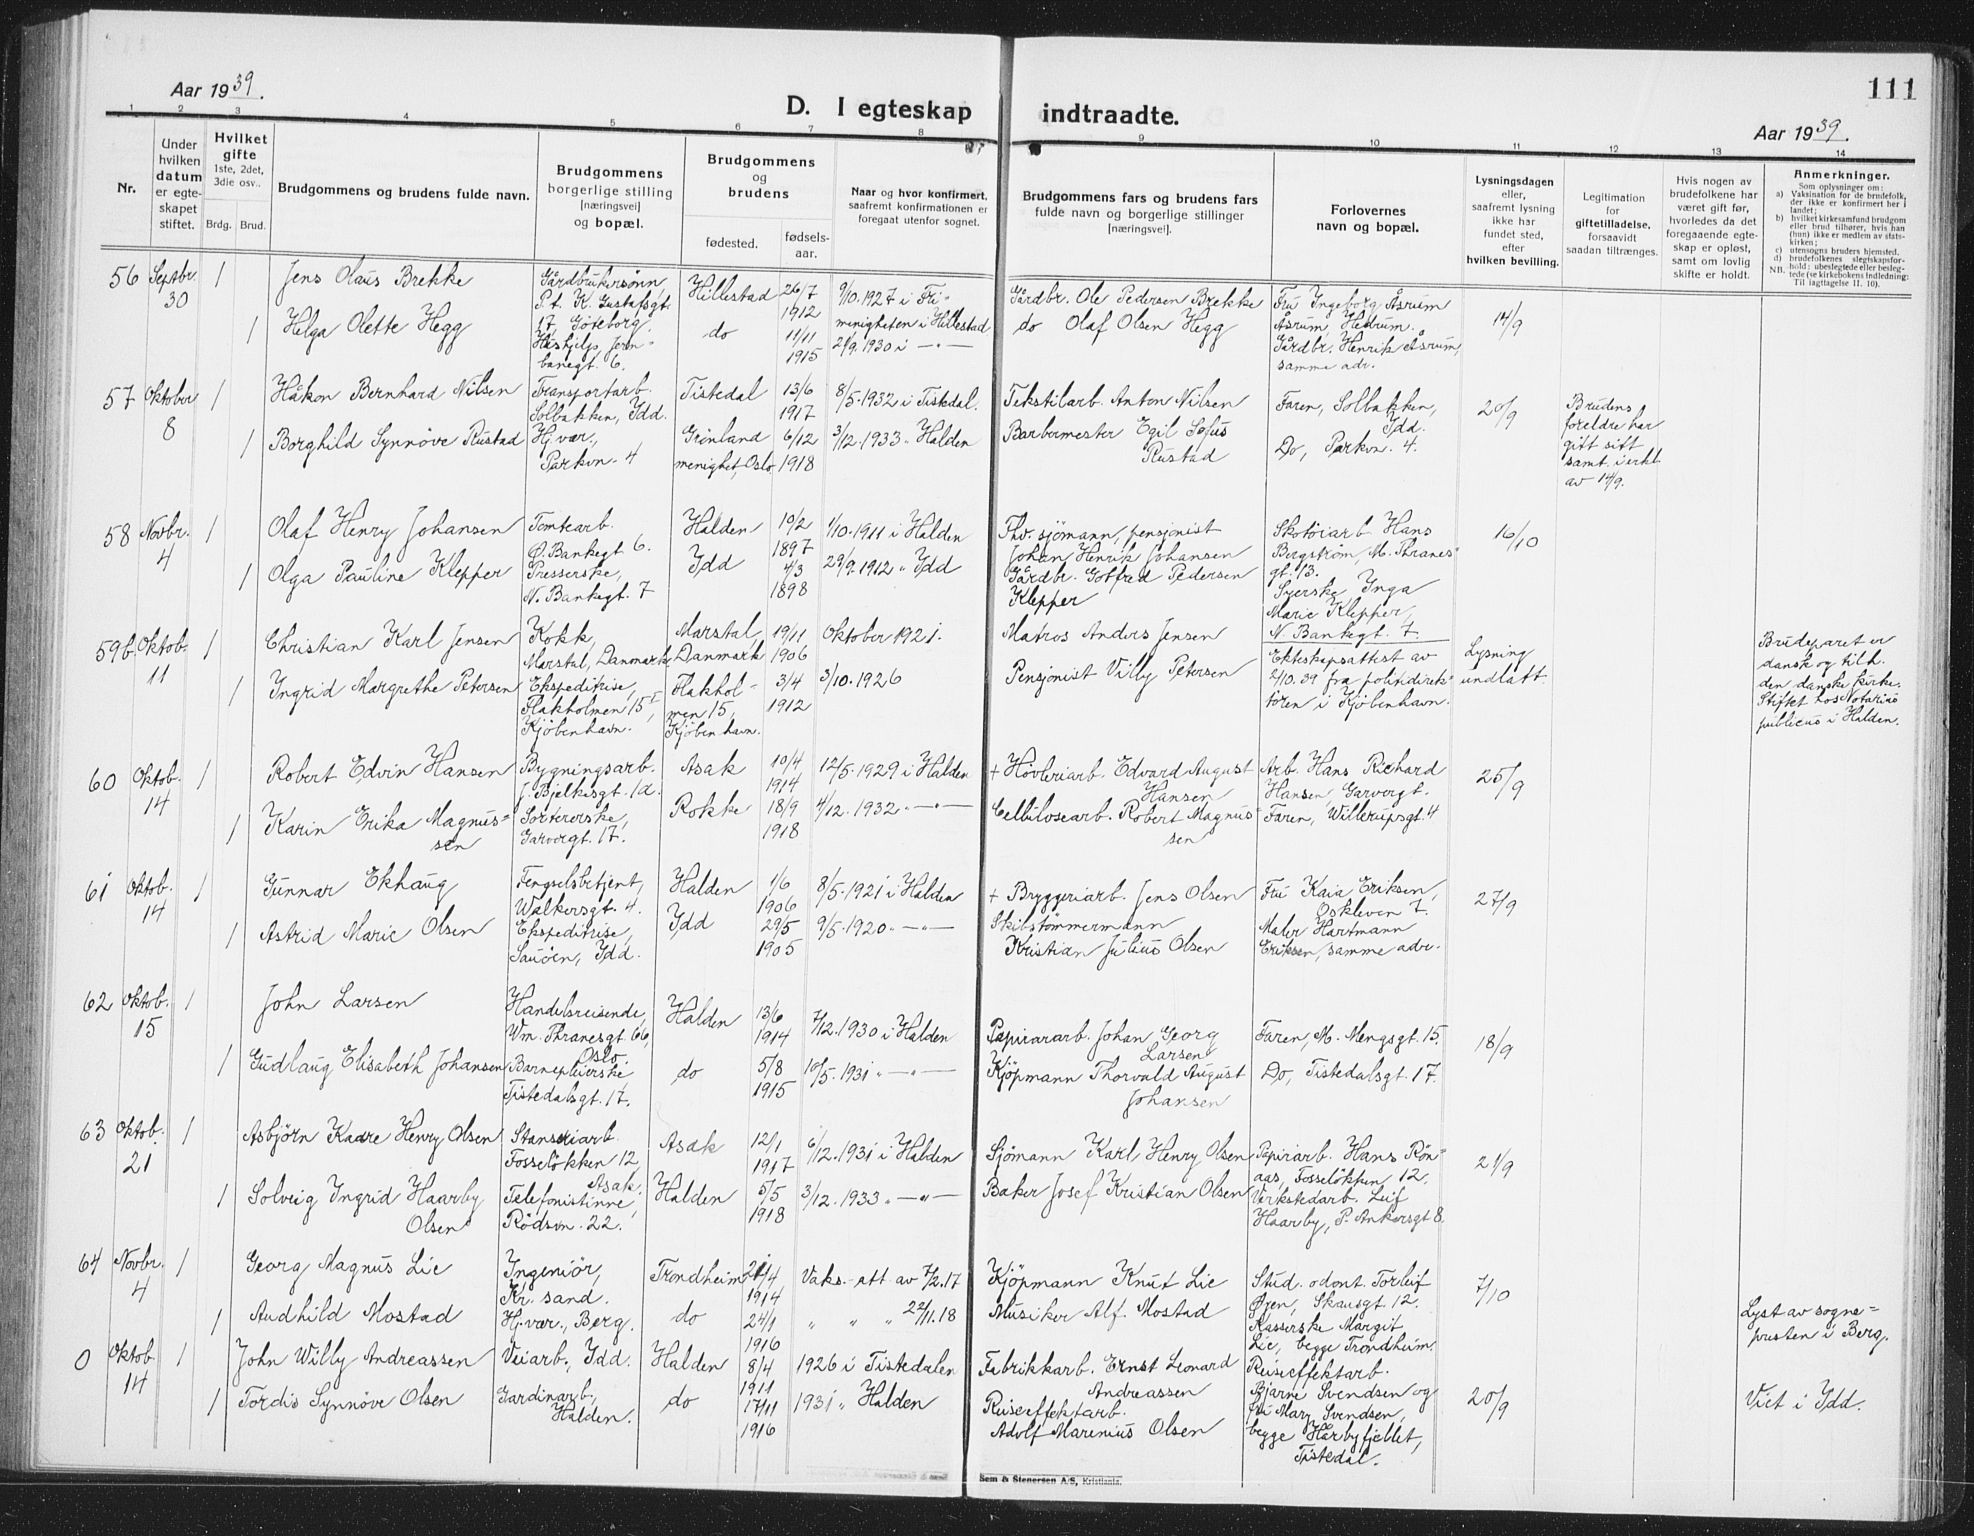 Aar 1939.
D. I egteskap indtraadte.
111
Aar 1939.
1 2 3 4 5 6 7 8 9 10 11 12 13 14
Nr.
Under hvilken datum er egte-skapet stiftet.
Hvilket gifte 1ste, 2det, 3die osv..
Brdg. Brud.
Brudgommens og brudens fulde navn.
Brudgommens borgerlige stilling [næringsvei] og bopæl.
Brudgommens og brudens
fødested. fødsels-aar.
Naar og hvor konfirmert, saafremt konfirmationen er foregaat utenfor sognet.
Brudgommens fars og brudens fars fulde navn og borgerlige stillinger [næringsvei].
Forlovernes navn og bopæl.
Lysningsdagen eller, saafremt lysning ikke har fundet sted, efter hvilken bevilling.
Legitimation for giftetilladelse, forsaavidt saadan tiltrænges.
Hvis nogen av brudefolkene har været gift før, hvorledes da det foregaaende egte-skap er opløst, samt om lovlig skifte er holdt.
Anmerkninger.
Som oplysninger om:
a) Vaksination for de brudefolk, der ikke er konfirmert her i landet;
b) hvilket kirkesamfund brudgom eller brud tilhører, hvis han (hun) ikke er medlem av stats-kirken;
c) utensogns bruders hjemsted.
d) brudefolkenes slegtskapsfor-hold: ubeslegtede eller besleg-tede (se kirkebokens indledning: Til iagttagelse 11. 10).
NB.
56 Septbr. 30 1 Jens Olaus Brekke Gårdbrukersønn P.t. K. Gustafsgt. 17, Göteborg. Hillestad 26/7 1912 9/10.1927 i Fri-menigheten i Hillestad Gårdbr. Ole Pedersen Brekke Fru Ingeborg Åsrum Åsrum, Hedrum. 14/9
1 Helga Olette Hegg Hushjelp Jern-banegt. 6. do 11/11 1915 21/9.1930 i —"— do Olaf Olsen Hegg Gårdbr. Henrik Åsrum, samme adr.
57 Oktober 8 1 Håkon Bernhard Nilsen Transportarb. Solbakken, Idd. Tistedal 13/6 1917 8/5.1932 i Tistedal. Tekstilarb. Anton Nilsen Faren, Solbakken, Idd. 20/9 Brudens foreldre har gitt sitt samt. i erkl. av 14/9.
1 Borghild Synnøve Rustad Hj.vær., Parkvn. 4 Grønland menighet, Oslo 6/12 1918 3/12.1933 " Halden Barbermester Egil Sofus Rustad Do, Parkvn. 4.
58 Novbr. 4 1 Olaf Henry Johansen Tomtearb. Ø. Bankegt 6. Halden 19/2 1897 1/10.1911 i Halden Fhv. sjømann, pensjonist Johan Henrik Johansen Skotøiarb Hans Bergstrøm, M. Thranes gt. 13. 16/10
1 Olga Pauline Klepper Presserske, N. Bankegt. 7 Idd 4/3 1898 29/9.1912 " Idd Gårdbr. Gotfred Pedersen Klepper Syerske Inga Marie Klepper, N. Bankegt. 7.
59b. Oktob. 11 1 Christian Karl Jensen Kokk, Marstal, Danmark Marstal, Danmark 19/11 1906 Oktober 1921. Matros Anders Jensen Ekteskapsattest av 2/10.39 fra politidirek-tören i Kjöbenhavn. Lysning undlatt. Brudeparet er dansk og tilh. den danske kirke. Stiftet hos Notarius publicus i Halden.
1 Ingrid Margrethe Petersen Ekspeditrise, Flakholmen 15, Kjöbenhavn. Flakhol-men 15, Kjöbenhavn. 3/4 1912 3/10.1926 Pensjonist Villy Petersen
60 Oktob. 14 1 Robert Edvin Hansen Bygningsarb. J. Bjelkesgt. 1a. Asak 10/4 1914 12/5.1929 i Halden + Høvleriarb. Edvard August Hansen Arb. Hans Richard Hansen, Garvergt. 25/9
1 Karin Erika Magnus-sen Sortererske, Garvergt. 17. Rokke 18/9 1918 4/12.1932 "—"— Cellulosearb. Robert Magnus-sen Faren, Willerupsgt. 4
61 Oktob. 14 1 Gunnar Ekhaug Fengselsbetjent, Walkersgt. 4. Halden 1/6 1906 8/5.1921 i Halden + Bryggeriarb. Jens Olsen Fru Kaia Eriksen, Oskleven 7. 27/9
1 Astrid Marie Olsen Ekspeditrise, Sauøen, Idd. Idd 29/5 1905 9/5.1920 "—"— Skibstømmermann Kristian Julius Olsen Maler Hartmann Eriksen, samme adr.
62 Oktob. 15 1 John Larsen Handelsreisende, Wm. Thranesgt. 66, Oslo. Halden 13/6 1914 7/12.1930 i Halden Papirarb. Johan Georg Larsen Faren, M. Mengsgt. 15. 18/9
1 Gudlaug Elisabeth Johansen Barnepleierske Tistedalsgt. 17. do 5/8 1915 10/5.1931 "—"— Kjöpmann Thorvald August Johansen Do, Tistedalsgt. 17.
63 Oktob. 21 1 Asbjörn Kaare Henry Olsen Stanseriarb. Fosseløkken 12, Asak. Asak 12/1 1917 6/12.1931 i Halden Sjömann Karl Henry Olsen Papirarb. Hans Røn-aas, Fosseløkken 12. 21/9
1 Solveig Ingrid Haarby Olsen Telefonistinne, Rödsvn. 22. Halden 5/5 1918 3/12.1933 "—"— Baker Josef Kristian Olsen Verkstedarb. Leif Haarby, P. Ankersgt 8.
64 Novbr. 4 1 Georg Magnus Lie Ingeniör, Kr. sand. Trondheim 21/4 1914 Vaks.-att av 7/2.17 Kjöpmann Knut Lie Stud. odont. Torleif Øien, Skausgt. 12. 7/10 Lyst av sogne-presten i Berg.
1 Audhild Mostad Hj.vær., Berg. do 24/1 1916 " " " 22/11.18 Musiker Alf. Mostad Kasserske Margit Lie, begge Trondheim.
0 Oktob. 14 1 John Willy Andreassen Veiarb., Idd. Halden 8/4 1911 1926 i Tistedalen Fabrikkarb. Ernst Leonard Andreassen Reiseeffektarb. Bjarne Svendsen og fru Mary Svendsen, begge Hårbyfjellet, Tistedal. 20/9 Viet i Idd.
1 Tordis Synnöve Olsen Gardinarb., Halden. do 17/11 1916 1931 " Halden Reiseeffektarb. Adolf Marenius Olsen
Sem & Stenersen A/S, Kristiania.